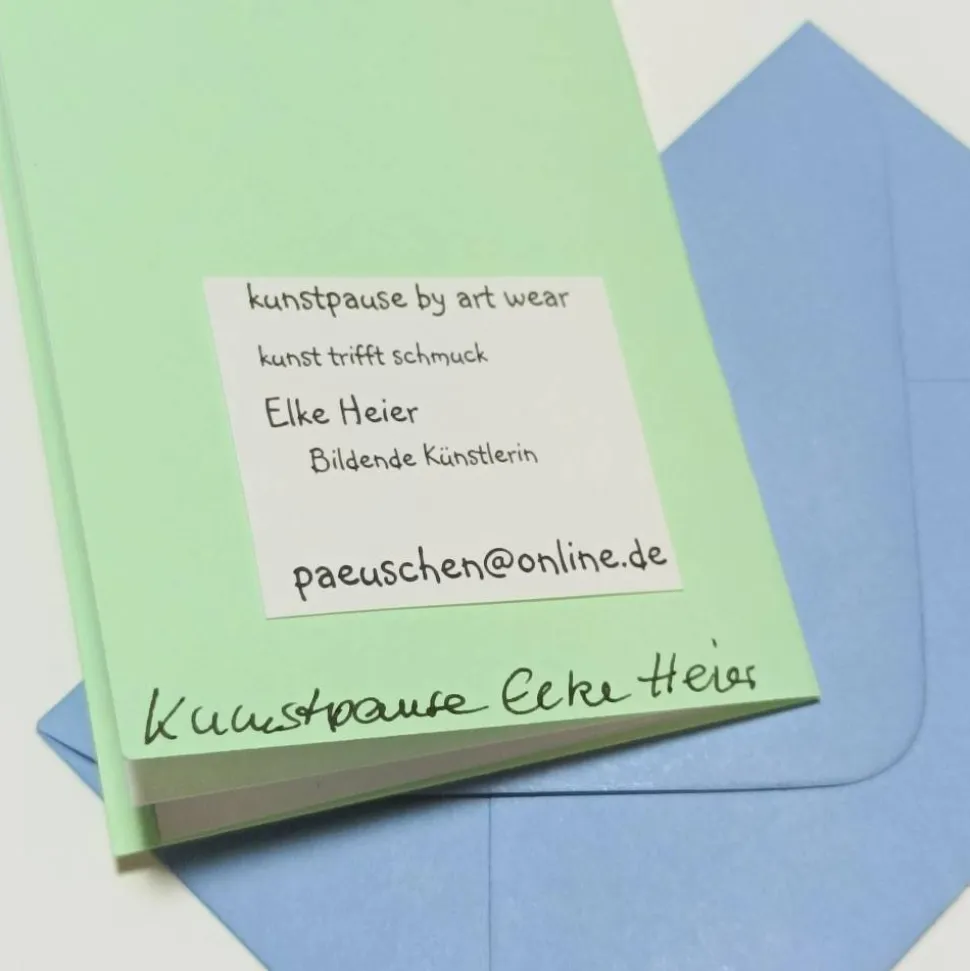 kunstpause by art wear
kunst trifft schmuck
Elke Heier
Bildende Künstlerin
paeuschen@online.de
Kunstpause Elke Heier